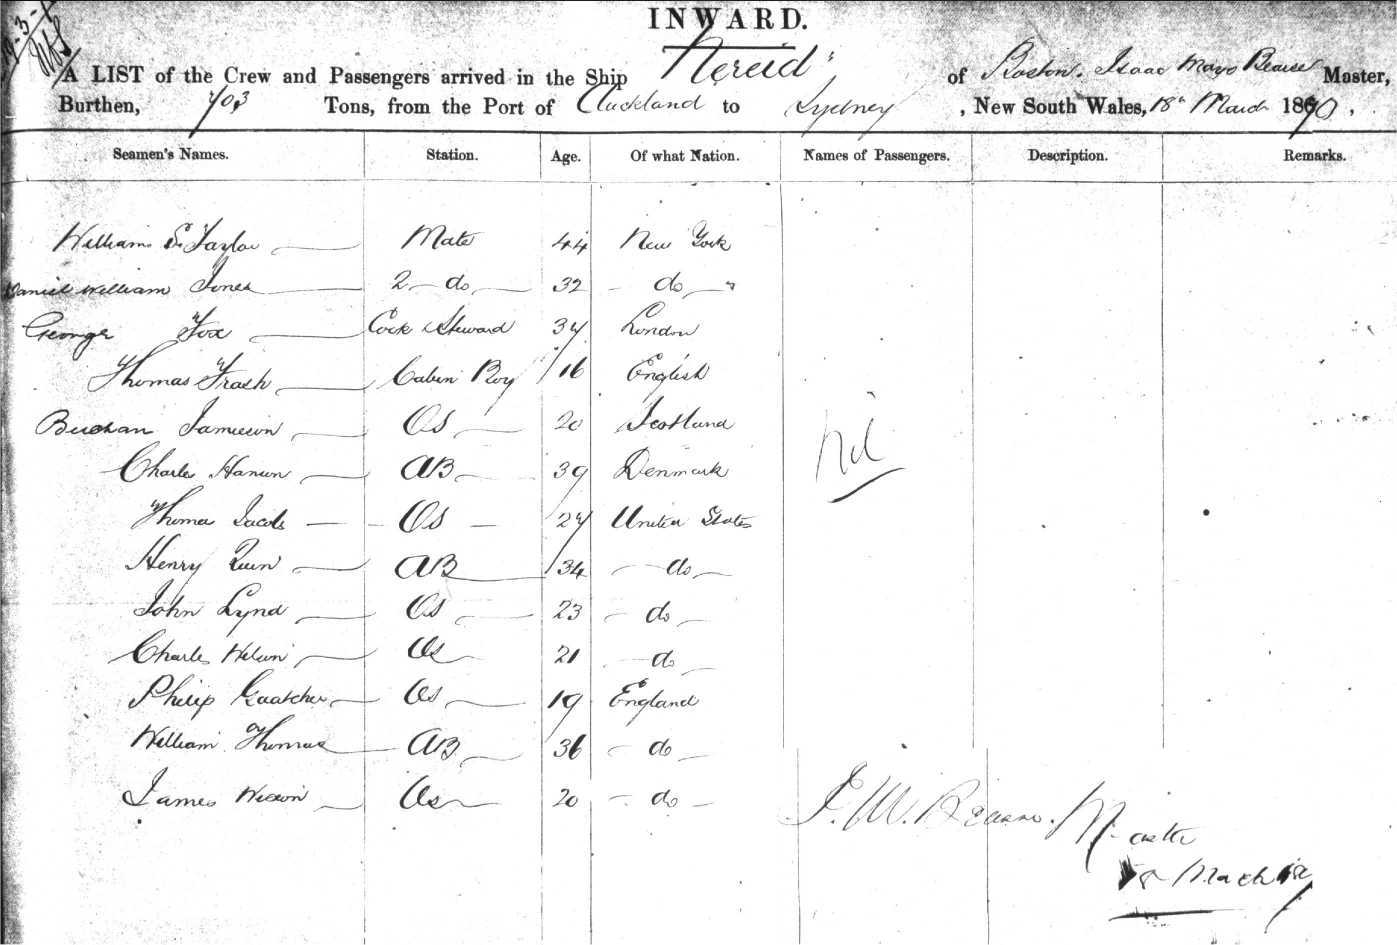 INWARD.
A LIST of the Crew and Passengers arrived in the Ship "Nereid" of Boston. Isaac Mayo Master,
Burthen, 703 Tons, from the Port of Auckland to Sydney, New South Wales, 18th March 1870.
Seamen's Names. Station. Age. Of what Nation. Names of Passengers. Description. Remarks.
William S. Taylor Mate 44 New York
Daniel William Jones 2 do 32 do
George Fox Cook & Steward 34 London
Thomas Trash Cabin Boy 16 English
Buchan Jamieson OS 20 Scotland
Charles Hansen AB 39 Denmark
Nil
Thomas Jacobs OS 24 United States
Henry Quin AB 34 do
John Lynd OS 23 do
Charles OS 21 do
Philip OS 19 England
William Thomas AB 36 do
James OS 20 do
I. M. Master
18 March